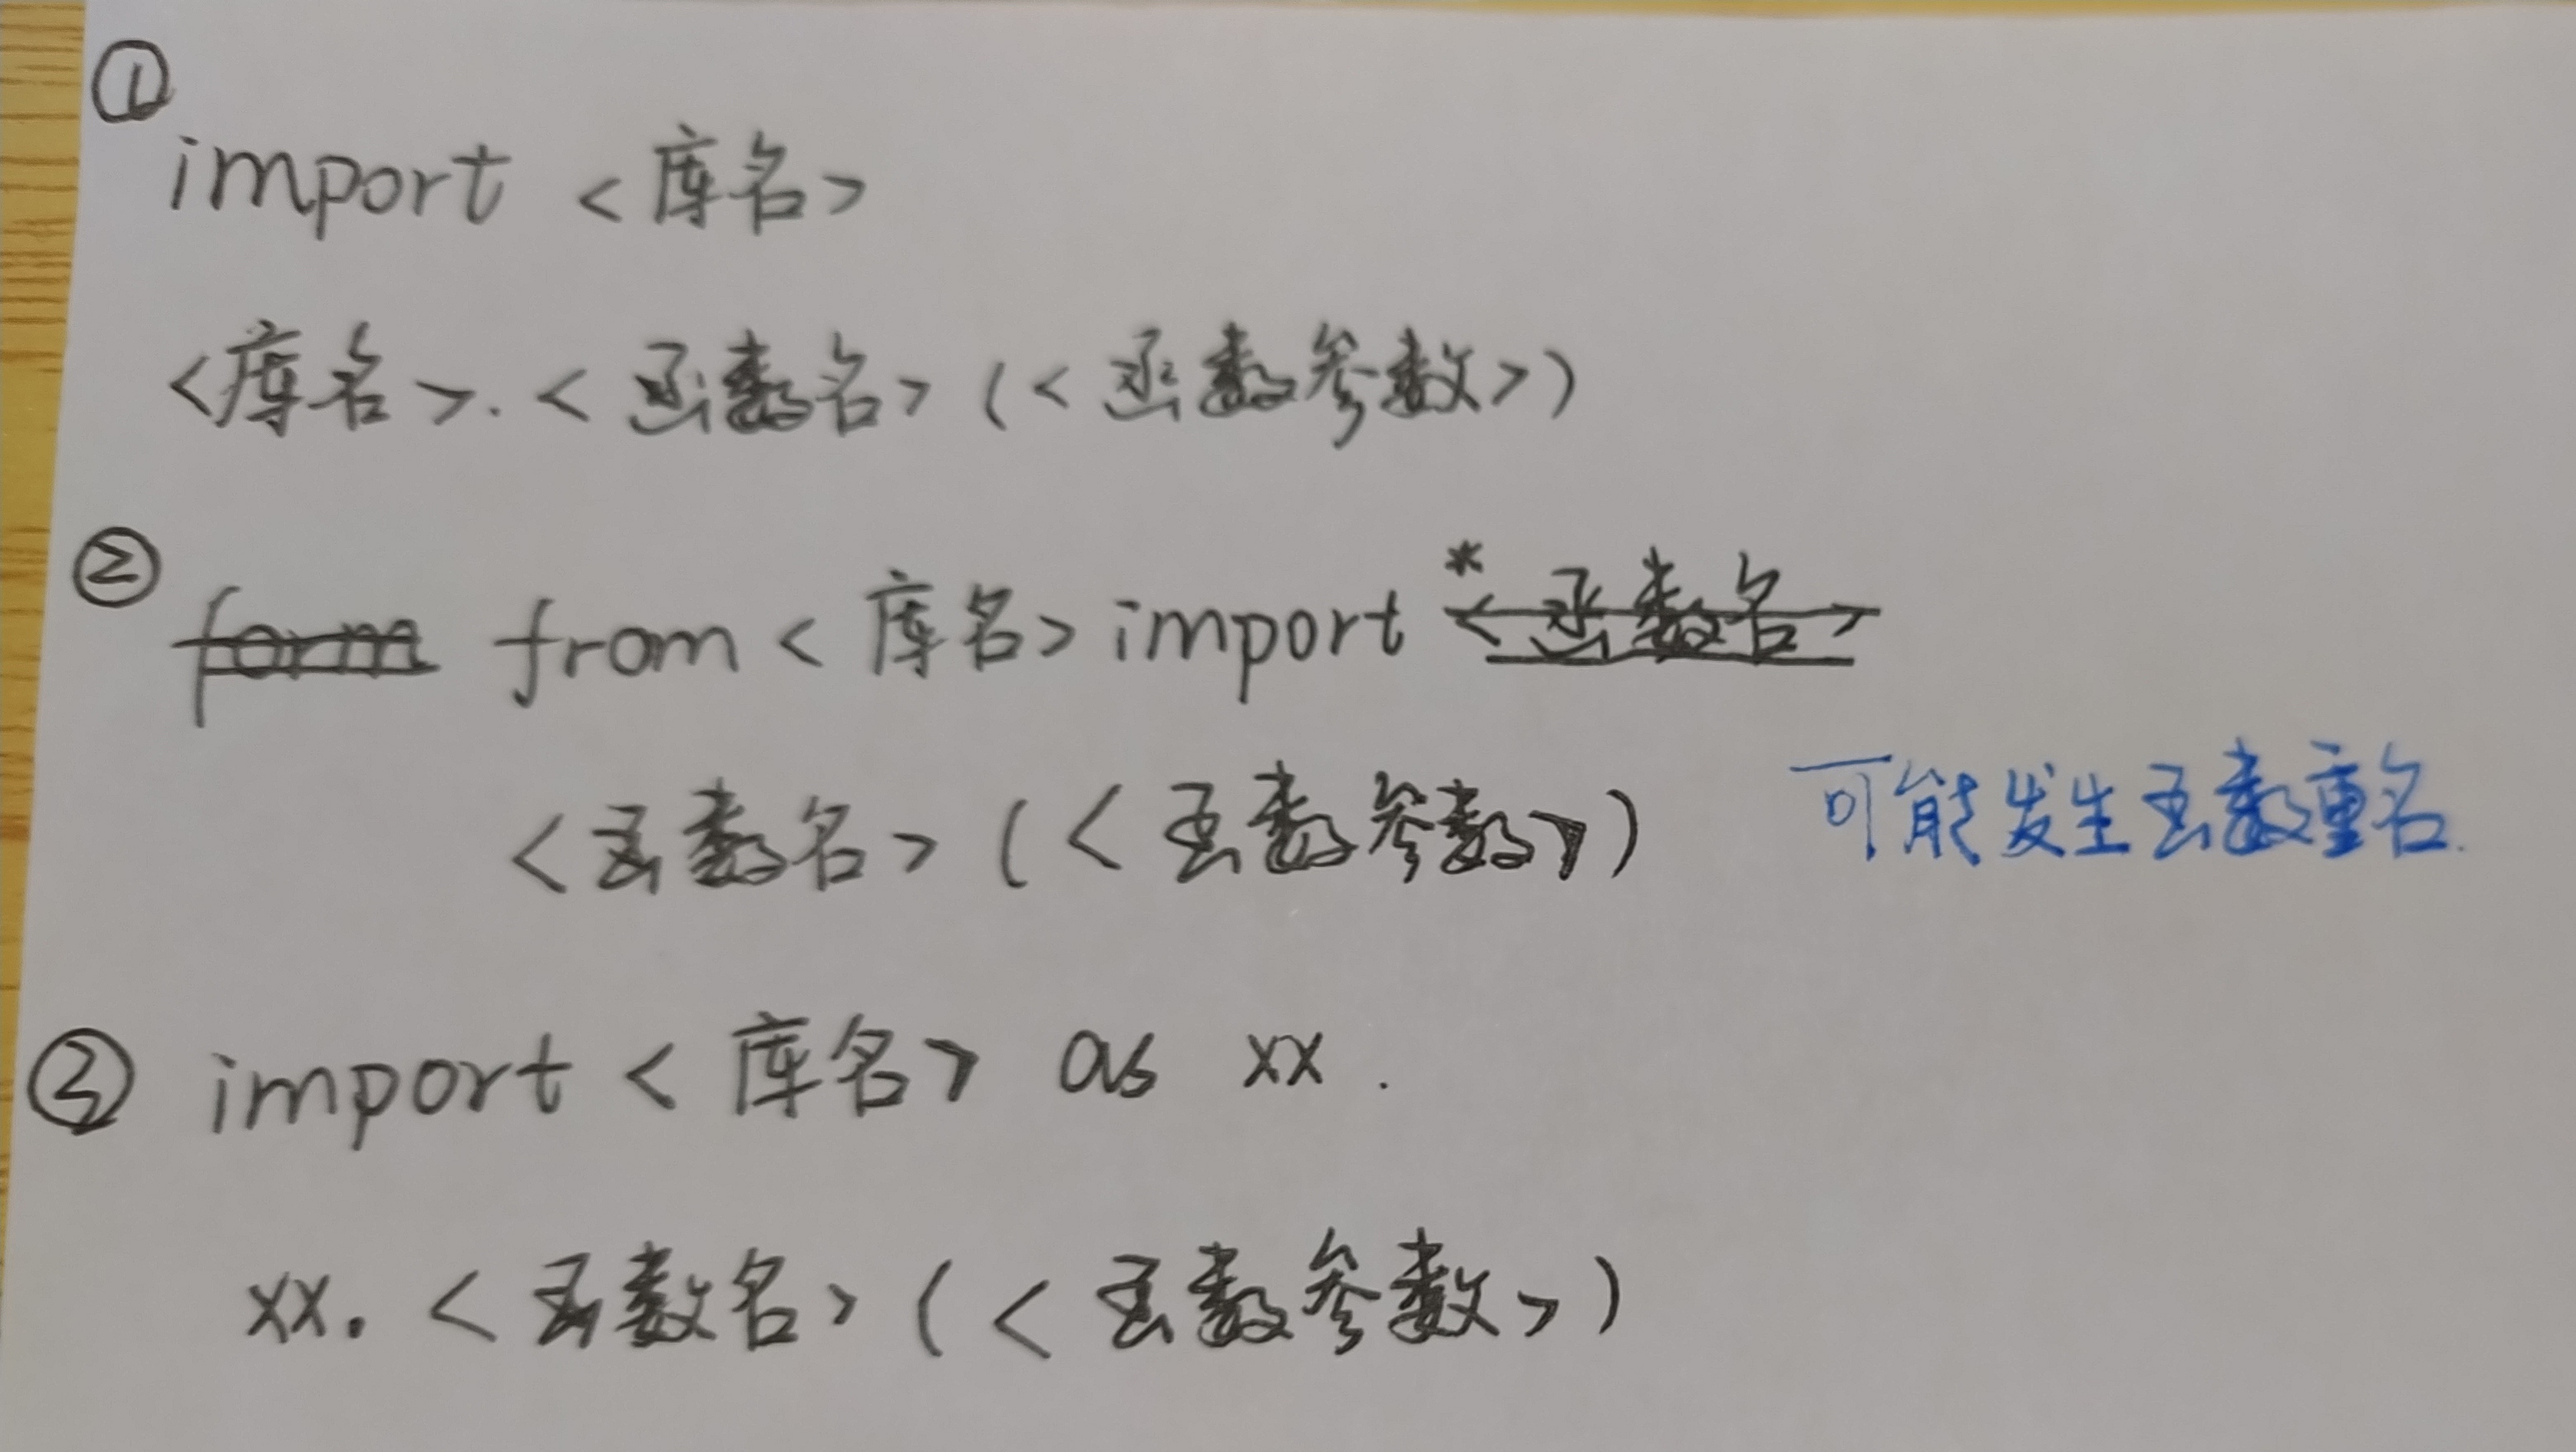 ①
import <库名>
<库名>.<函数名>(<函数参数>)
②
form from <库名> import * <函数名>
<函数名>(<函数参数>) 可能发生函数重名.
③ import <库名> as xx.
xx.<函数名>(<函数参数>)